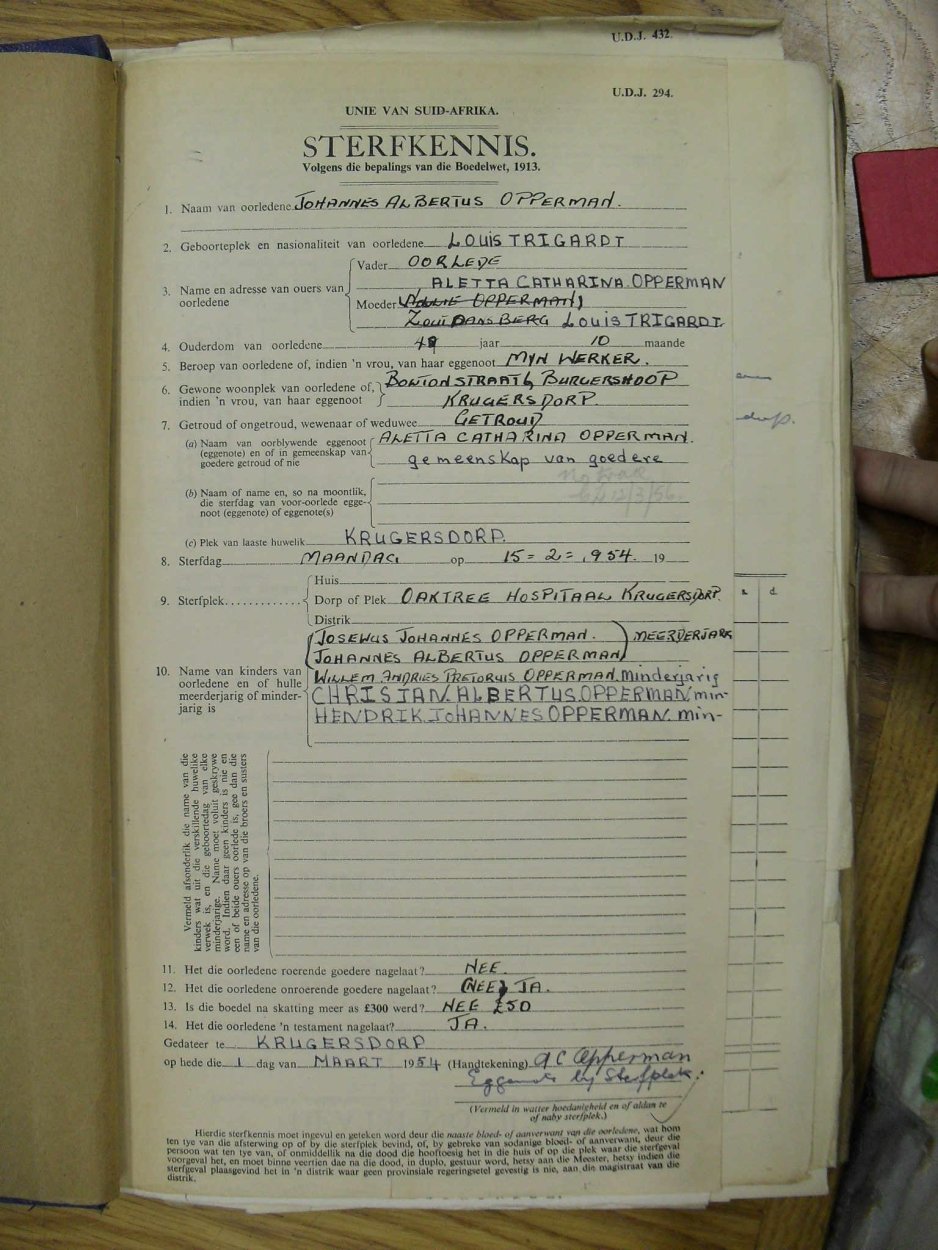 U.D.J. 432.
U.D.J. 294.
UNIE VAN SUID-AFRIKA.
STERFKENNIS.
Volgens die bepalings van die Boedelwet, 1913.
1. Naam van oorledene JOHANNES ALBERTUS OPPERMAN.
2. Geboorteplek en nasionaliteit van oorledene LOUIS TRIGARDT
3. Name en adresse van ouers van oorledene
Vader OORLEDE
ALETTA CATHARINA OPPERMAN
Moeder OPPERMAN
ZOUTPANSBERG LOUIS TRIGARDT
4. Ouderdom van oorledene 49 jaar 10 maande
5. Beroep van oorledene of, indien 'n vrou, van haar eggenoot MYN WERKER.
6. Gewone woonplek van oorledene of, indien 'n vrou, van haar eggenoot
BOWTON STRAAT 6 BURGERSHOOP
KRUGERSDORP.
7. Getroud of ongetroud, wewenaar of weduwee GETROUD
(a) Naam van oorblywende eggenoot (eggenote) en of in gemeenskap van goedere getroud of nie
ALETTA CATHARINA OPPERMAN.
gemeenskap van goedere
12/3/56
(b) Naam of name en, so na moontlik, die sterfdag van voor-oorlede eggenoot (eggenote) of eggenote(s)
(c) Plek van laaste huwelik KRUGERSDORP.
8. Sterfdag MAANDAG op 15 = 2 = 1954. 19
9. Sterfplek
Huis
Dorp of Plek OAKTREE HOSPITAAL KRUGERSDORP.
Distrik
10. Name van kinders van oorledene en of hulle meerderjarig of minderjarig is
JOSEWUS JOHANNES OPPERMAN. MEERDERJARK
JOHANNES ALBERTUS OPPERMAN
WILLEM ANDRIES PRETORUIS OPPERMAN. Minderjarig
CHRISTIAN ALBERTUS OPPERMAN min-
HENDRIK JOHANNES OPPERMAN. min-
Vermeld afsonderlik die name van die
kinders wat uit die verskillende huwelike
verwek is, en die geboortedag van elke
minderjarige. Name moet voluit geskrywe
word. Indien daar geen kinders is nie en
een of beide ouers oorlede is, gee dan die
name en adresse op van die broers en susters
van die oorledene.
11. Het die oorledene roerende goedere nagelaat? NEE.
12. Het die oorledene onroerende goedere nagelaat? (NEE) JA.
13. Is die boedel na skatting meer as £300 werd? NEE £50
14. Het die oorledene 'n testament nagelaat? JA.
Gedateer te KRUGERSDORP
op hede die 1 dag van MAART 1954 (Handtekening) A C Opperman
Eggenote by Sterfplek.
(Vermeld in watter hoedanigheid en of aldan te
of naby sterfplek.)
Hierdie sterfkennis moet ingevul en geteken word deur die naaste bloed- of aanverwant van die oorledene, wat hom
ten tye van die afsterwing op of by die sterfplek bevind, of, by gebreke van sodanige bloed- of aanverwant, deur die
persoon wat ten tye van, of onmiddellik na die dood die hooftoesig het in die huis of op die plek waar die sterfgeval
voorgeval het, en moet binne veertien dae na die dood, in duplo, gestuur word, hetsy aan die Meester, hetsy indien die
sterfgeval plaasgevind het in 'n distrik waar geen provinsiale regeringsetel gevestig is nie, aan die magistraat van die
distrik.